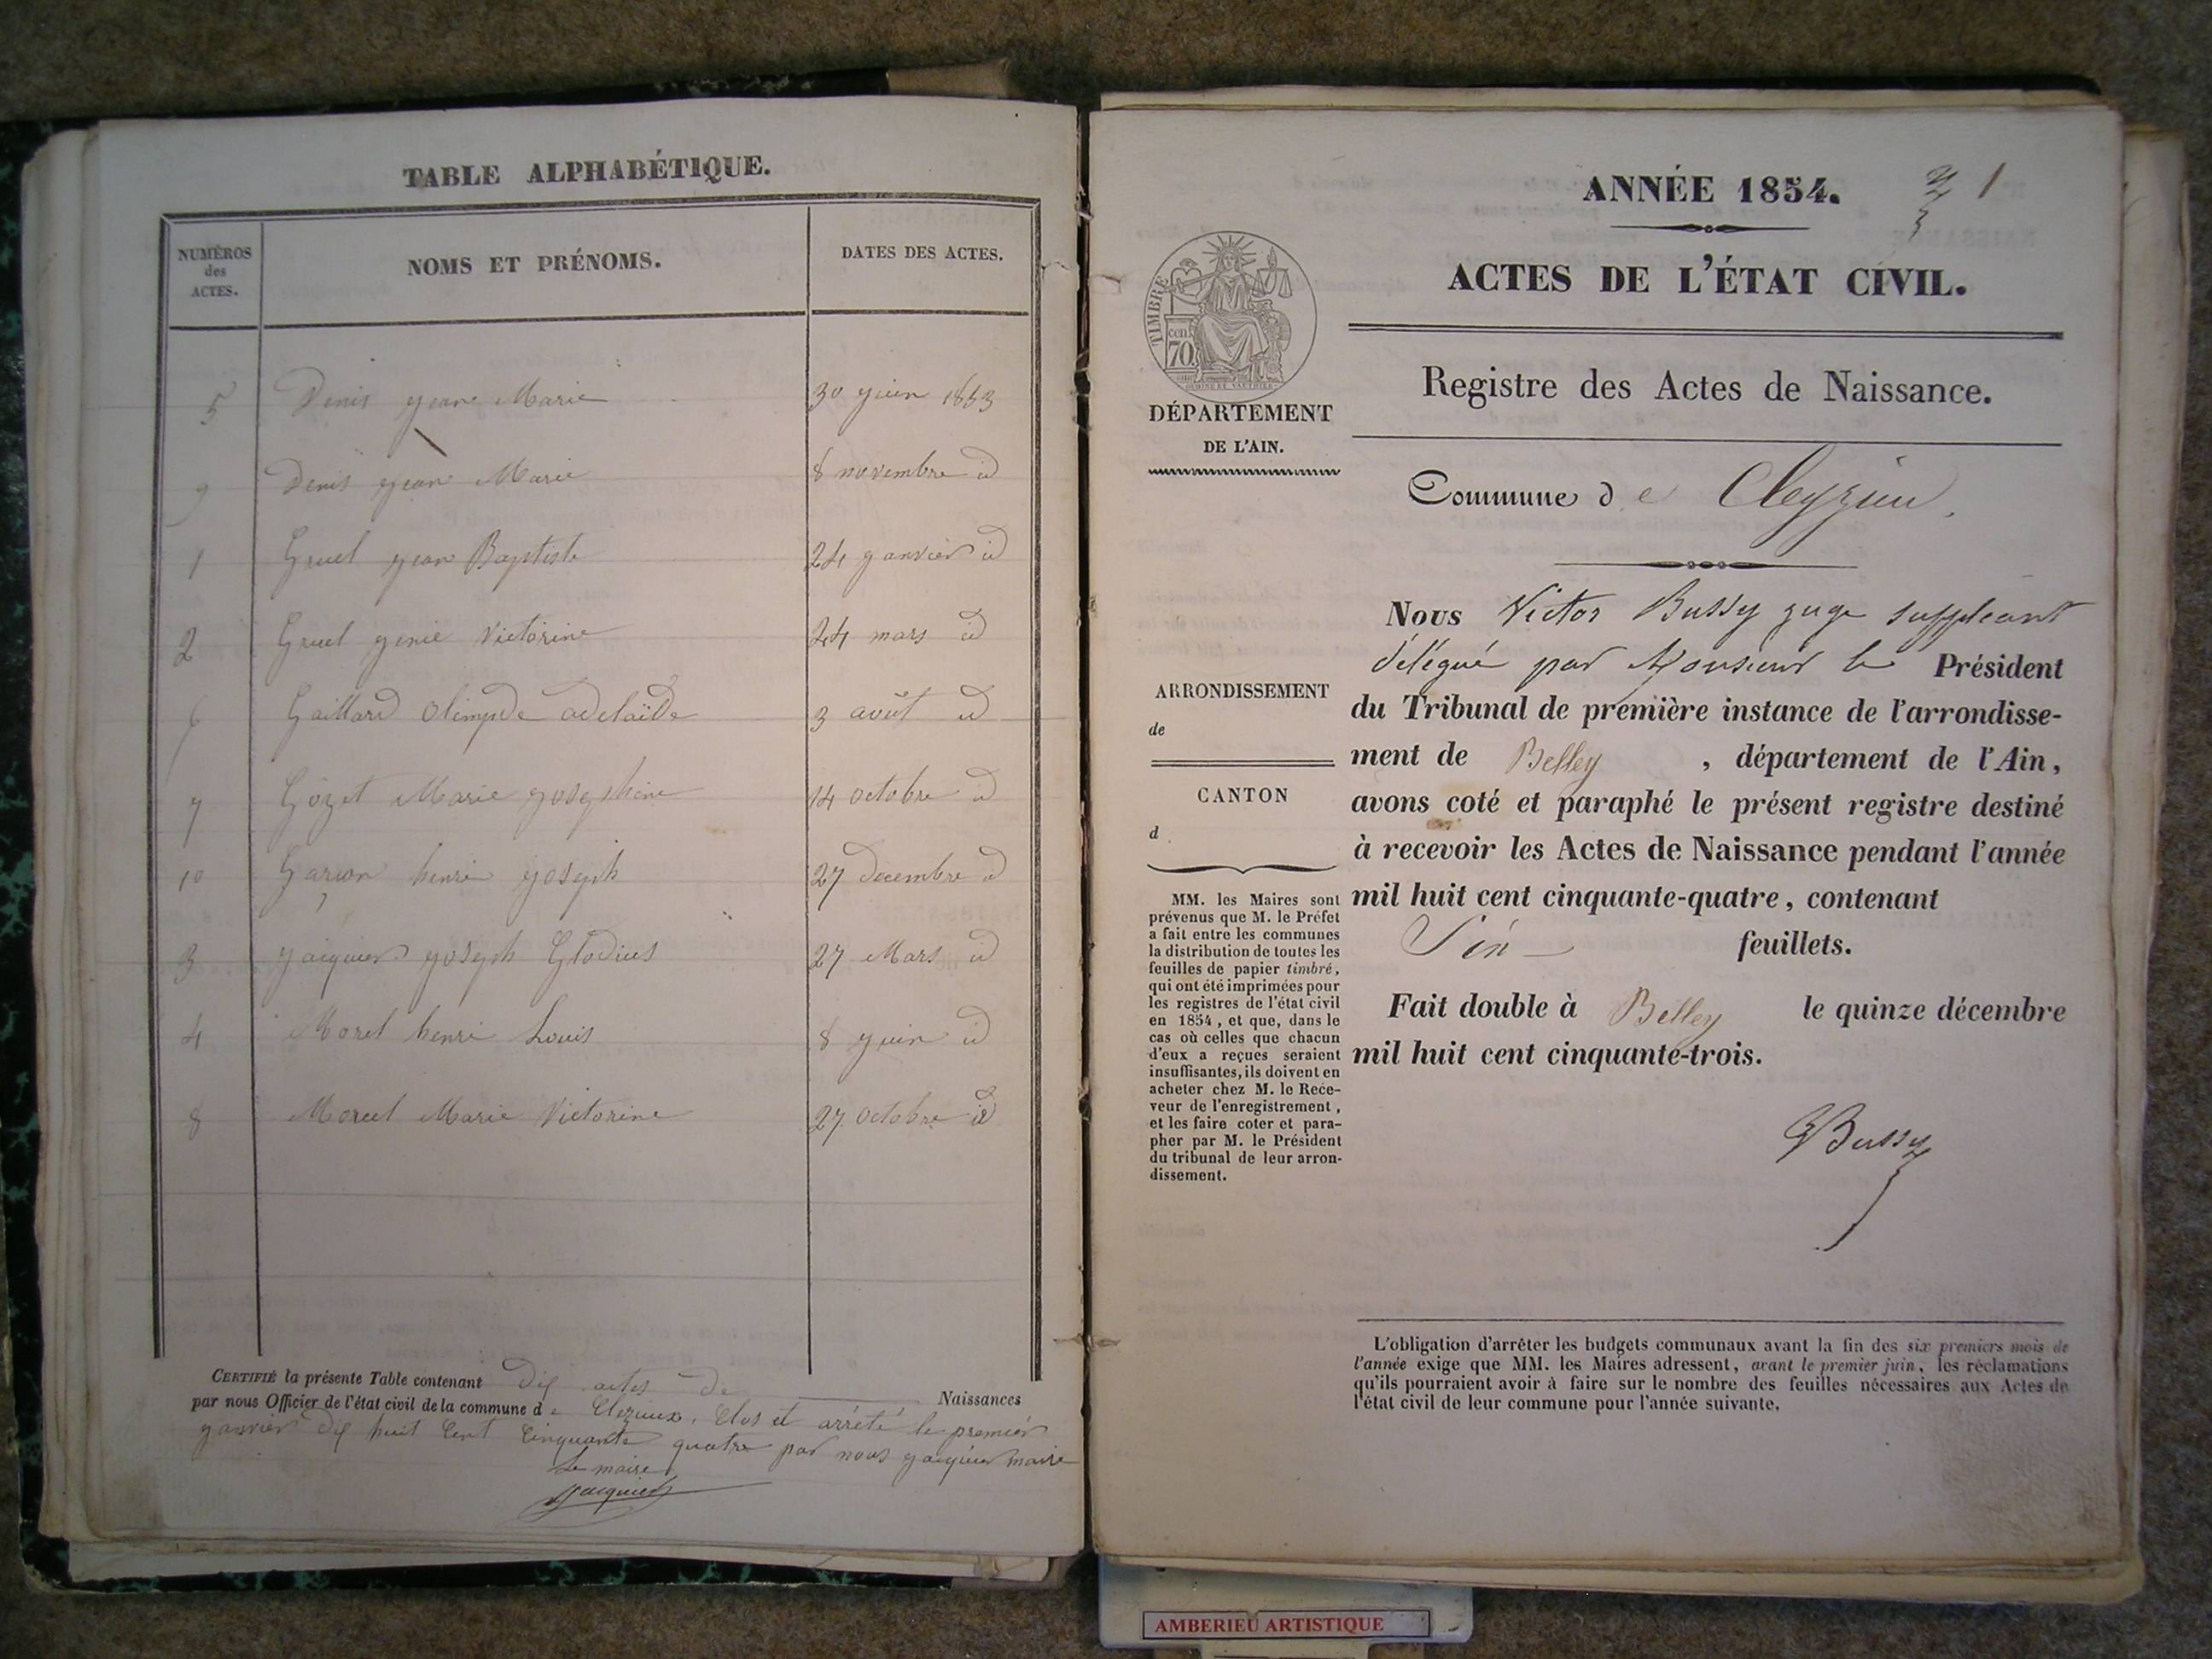 TABLE ALPHABÉTIQUE.
NUMÉROS
des
ACTES.
NOMS ET PRÉNOMS.
DATES DES ACTES.
5 Denis jean Marie 30 juin 1853
9 Denis jean Marie 8 novembre id
1 Gruel jean Baptiste 24 janvier id
2 Gruel genie victorine 24 mars id
6 Gaillard olimpde adelaïde 3 août id
7 Gozet Marie josephine 14 octobre id
10 Garçon henri joseph 27 decembre id
3 jaiquier joseph Glodius 27 Mars id
4 Morel henri Louis 8 juin id
8 Morel Marie Victorine 27 octobre id
CERTIFIÉ la présente Table contenant dix actes de
Naissances
par nous Officier de l'état civil de la commune de Clezieux. Clos et arrété le premier
janvier dix huit Cent Cinquante quatre par nous jaiquier maire
Le maire
Jaiquier
ANNÉE 1854.
1
ACTES DE L'ÉTAT CIVIL.
TIMBRE
cen
70
DÉPARTEMENT
DE L'AIN.
Registre des Actes de Naissance.
Commune de Cleyzieu.
Nous Victor Bussy juge suppleant
délégué par Monsieur le Président
du Tribunal de première instance de l'arrondisse-
ment de Belley, département de l'Ain,
avons coté et paraphé le présent registre destiné
à recevoir les Actes de Naissance pendant l'année
mil huit cent cinquante-quatre, contenant
feuillets.
Fait double à Belley le quinze décembre
mil huit cent cinquante-trois.
Bussy
ARRONDISSEMENT
de
CANTON
d
MM. les Maires sont
prévenus que M. le Préfet
a fait entre les communes
la distribution de toutes les
feuilles de papier timbré,
qui ont été imprimées pour
les registres de l'état civil
en 1854, et que, dans le
cas où celles que chacun
d'eux a reçues seraient
insuffisantes, ils doivent en
acheter chez M. le Rece-
veur de l'enregistrement,
et les faire coter et para-
pher par M. le Président
du tribunal de leur arron-
dissement.
L'obligation d'arrêter les budgets communaux avant la fin des six premiers mois de
l'année exige que MM. les Maires adressent, avant le premier juin, les réclamations
qu'ils pourraient avoir à faire sur le nombre des feuilles nécessaires aux Actes de
l'état civil de leur commune pour l'année suivante.
AMBERIEU ARTISTIQUE